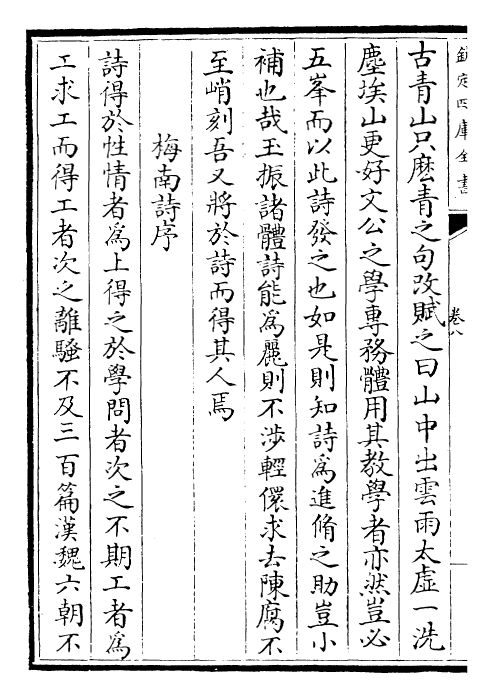 欽定四庫全書
卷八
古青山只麽青之句改賦之曰山中出雲雨太虛一洗
塵埃山更好文公之學專務體用其教學者亦然豈必
五峯而以此詩發之也如是則知詩爲進脩之助豈小
補也哉玉振諸體詩能爲麗則不涉輕儇求去陳腐不
至峭刻吾又將於詩而得其人焉
梅南詩序
詩得於性情者爲上得之於學問者次之不期工者爲
工求工而得工者次之離騷不及三百篇漢魏六朝不